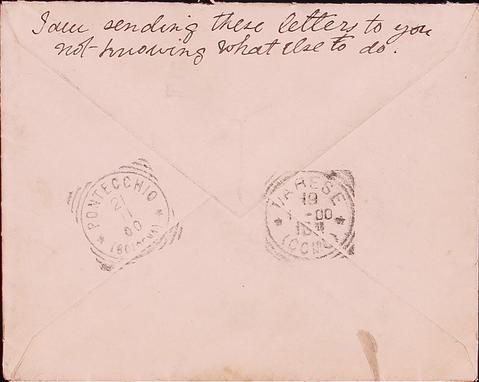 I am sending these letters to you
not knowing what else to do.
PONTECCHIO
21
00
(BOLOGNA)
VARESE
19
-00
(COMO)